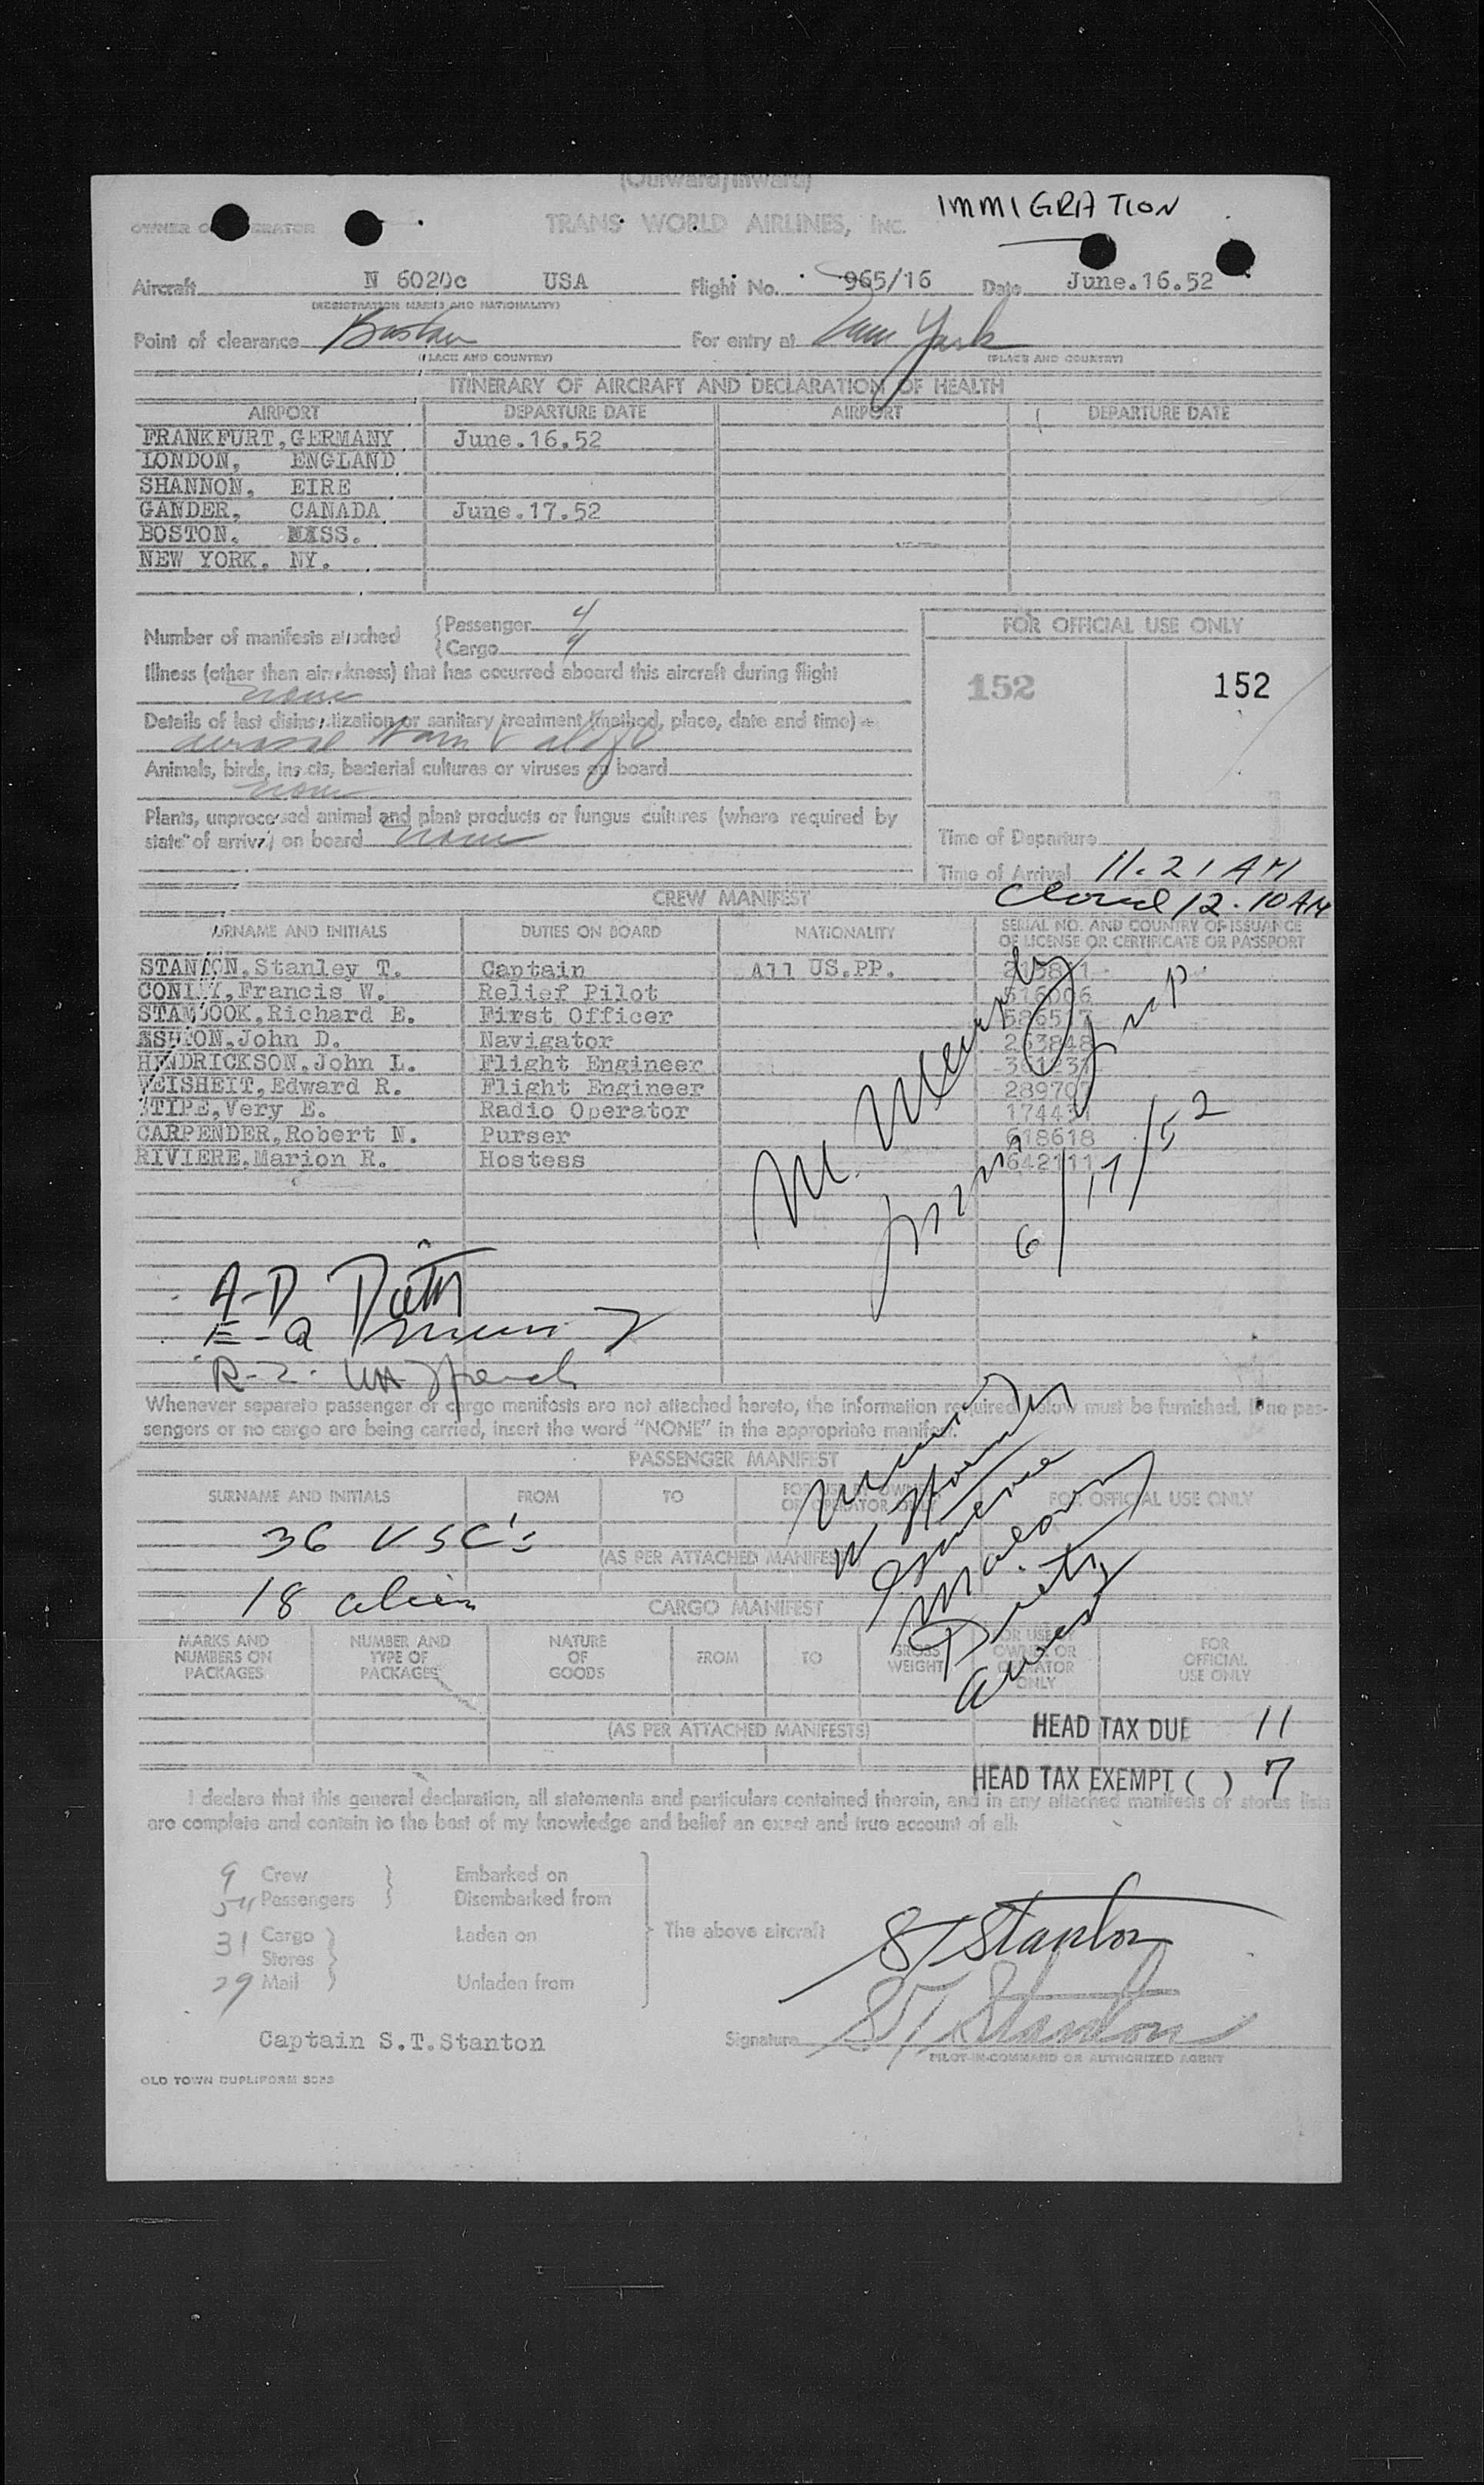 (Outward/Inward)
IMMIGRATION
OWNER O ERATOR TRANS WORLD AIRLINES, INC.
Aircraft N 6020c USA Flight No. 965/16 Date June.16.52
(REGISTRATION MARKS AND NATIONALITY)
Point of clearance Boston For entry at New York
(PLACE AND COUNTRY) (PLACE AND COUNTRY)
ITINERARY OF AIRCRAFT AND DECLARATION OF HEALTH
AIRPORT DEPARTURE DATE AIRPORT DEPARTURE DATE
FRANKFURT, GERMANY June.16.52
LONDON, ENGLAND
SHANNON, EIRE
GANDER, CANADA June.17.52
BOSTON, MASS.
NEW YORK, NY.
Number of manifests attached {Passenger 4
{Cargo 4
FOR OFFICIAL USE ONLY
152 152
Illness (other than airsickness) that has occurred aboard this aircraft during flight
none
Details of last disinsectization or sanitary treatment (method, place, date and time)
aerosol
Animals, birds, insects, bacterial cultures or viruses on board
none
Plants, unprocessed animal and plant products or fungus cultures (where required by
state of arrival) on board none
Time of Departure
Time of Arrival 11.21 AM
CREW MANIFEST
Cleared 12.10 AM
SURNAME AND INITIALS DUTIES ON BOARD NATIONALITY SERIAL NO. AND COUNTRY OF ISSUANCE
OF LICENSE OR CERTIFICATE OR PASSPORT
STANTON, Stanley T. Captain All US.PP.
Francis W. Relief Pilot 516006
STAMBOOK, Richard E. First Officer
ASHTON, John D. Navigator 253848
HENDRICKSON, John L. Flight Engineer
WEISHEIT, Edward R. Flight Engineer 289707
STIPE, Very E. Radio Operator
CARPENDER, Robert N. Purser 618618
RIVIERE, Marion R. Hostess 642111
6/17/52
A-D
E-Q
R-Z
Whenever separate passenger or cargo manifests are not attached hereto, the information required below must be furnished. If no pas-
sengers or no cargo are being carried, insert the word "NONE" in the appropriate manifest.
PASSENGER MANIFEST
SURNAME AND INITIALS FROM TO FOR USE BY OWNER
OR OPERATOR ONLY FOR OFFICIAL USE ONLY
36 USC's
(AS PER ATTACHED MANIFEST
18 alien
CARGO MANIFEST
MARKS AND
NUMBERS ON
PACKAGES NUMBER AND
TYPE OF
PACKAGES NATURE
OF
GOODS FROM TO GROSS
WEIGHT FOR USE BY
OWNER OR
OPERATOR
ONLY FOR
OFFICIAL
USE ONLY
(AS PER ATTACHED MANIFESTS)
HEAD TAX DUE 11
HEAD TAX EXEMPT ( ) 7
I declare that this general declaration, all statements and particulars contained therein, and in any attached manifests or stores lists
are complete and contain to the best of my knowledge and belief an exact and true account of all:
9 Crew Embarked on
54 Passengers Disembarked from
31 Cargo Laden on The above aircraft
Stores
29 Mail Unladen from
ST Stanton
Captain S.T.Stanton Signature ST Stanton
PILOT-IN-COMMAND OR AUTHORIZED AGENT
OLD TOWN DUPLIFORM